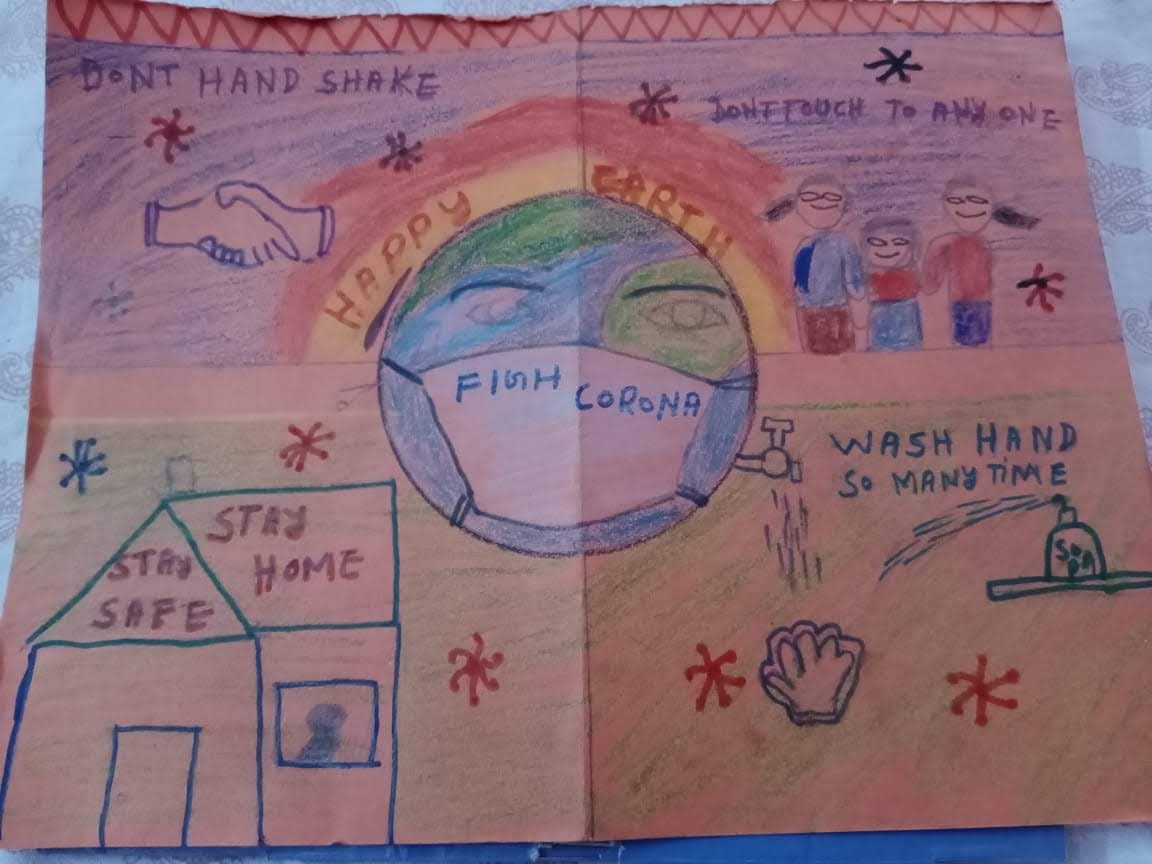 DONT HAND SHAKE
DONT TOUCH TO ANY ONE
HAPPY EARTH
FIGH CORONA
WASH HAND
SO MANY TIME
STAY
HOME
STAY
SAFE
SOPA